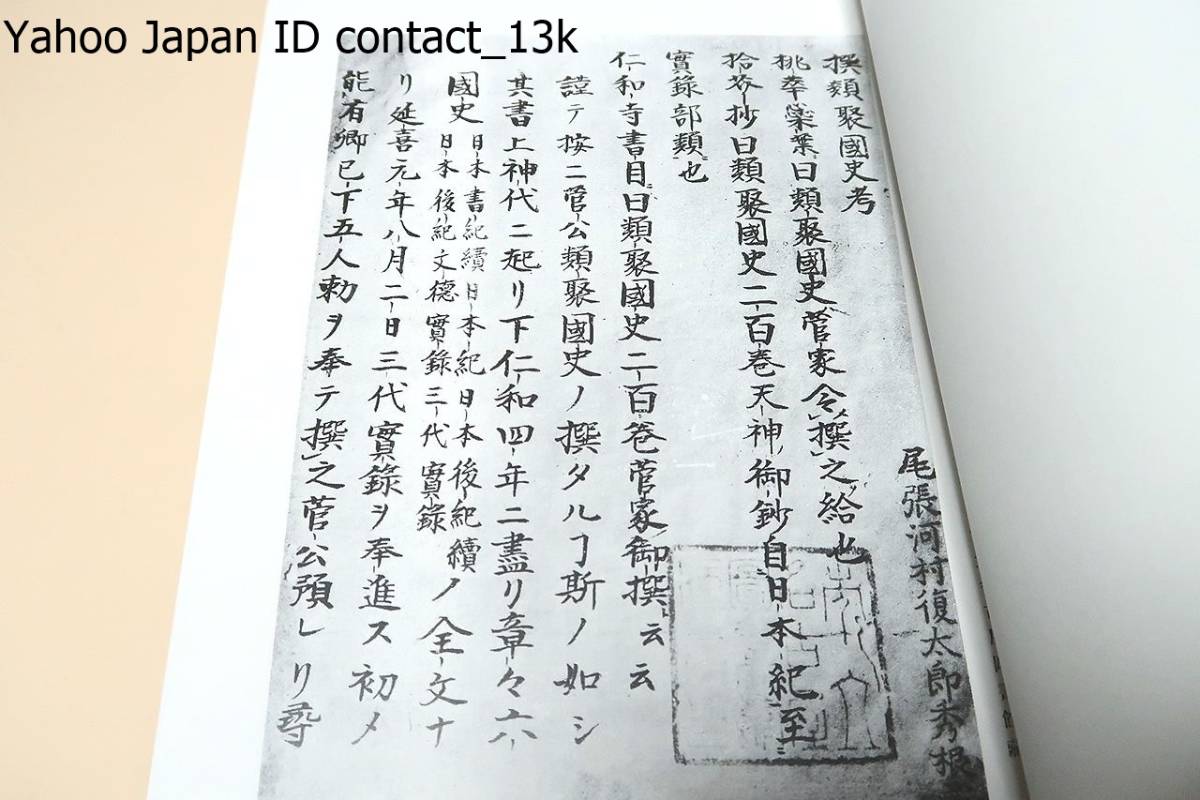 Yahoo Japan ID contact_13k
撰類聚國史考
尾張河村復太郎秀根
桃華蘂葉曰類聚國史菅家令撰之給也
拾芥抄曰類聚國史二百巻天神御鈔自日本紀至
實錄部類也
仁和寺書目曰類聚國史二百巻菅家御撰云云
謹テ按ニ菅公類聚國史ノ撰タルヿ斯ノ如シ
其書上神代ニ起リ下仁和四年ニ盡リ章々六
國史日本書紀續日本紀日本後紀續
日本後紀文德實錄三代實錄ノ全文ナ
リ延喜元年八月二日三代實錄ヲ奉進ス初メ
能有卿已下五人勅ヲ奉テ撰之菅公預レリ尋